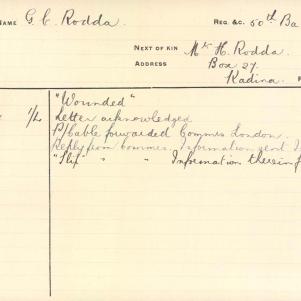 NAME G. C. Rodda. REG. &C. 50th Ba
NEXT OF KIN Mr H. Rodda.
ADDRESS Box 27.
Kadina.
"Wounded"
1/2 Letter acknowledged
P/Cable forwarded Commrs London.
Reply from Commrs. Information sent
"Slip" " " Information therein